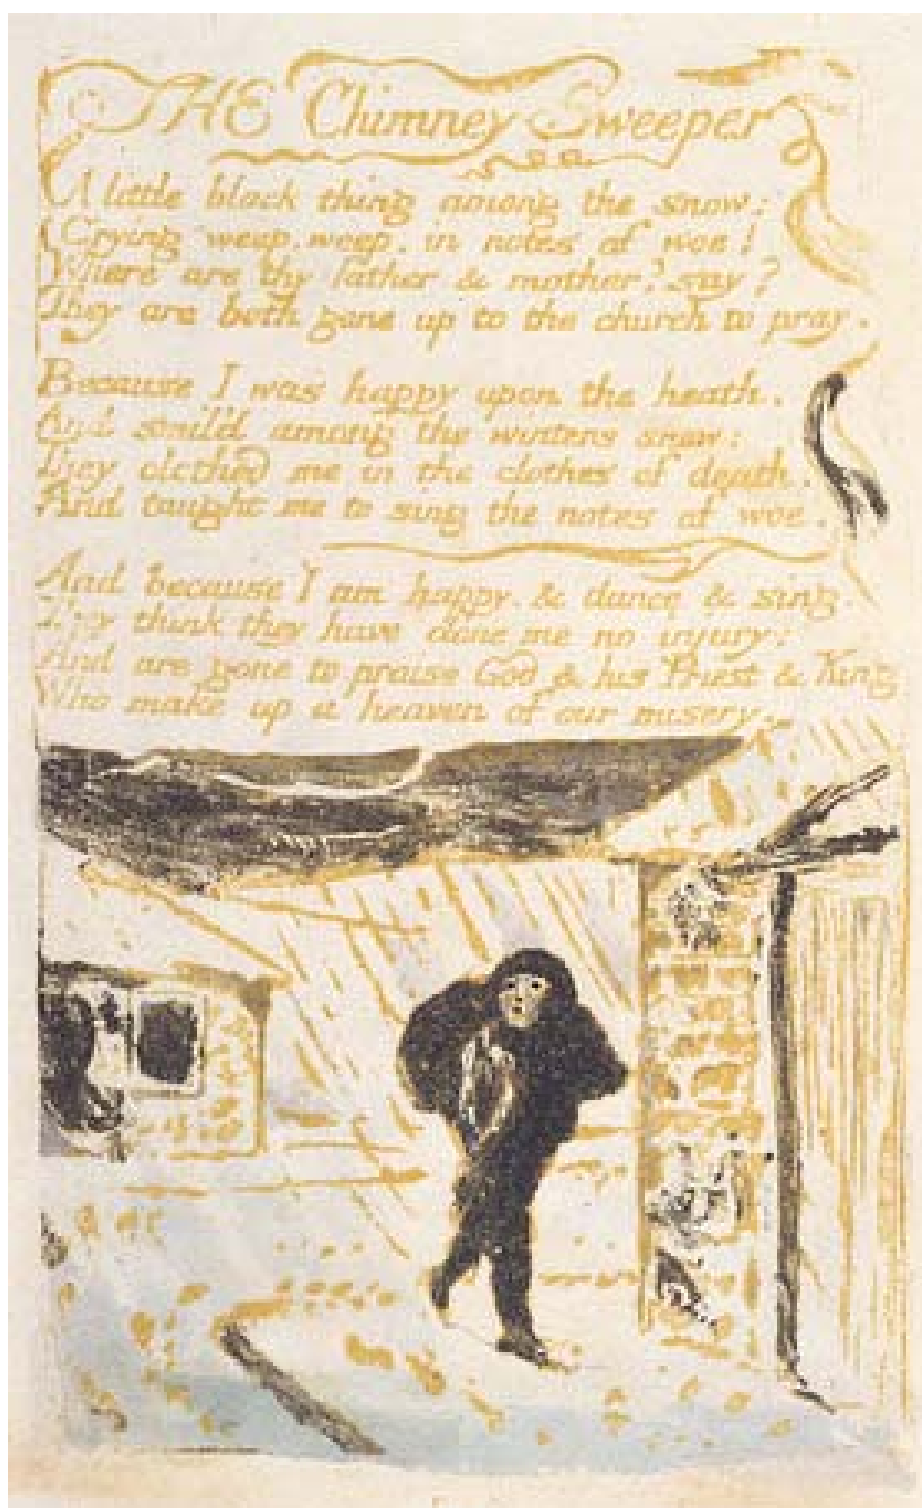 THE Chimney Sweeper
A little black thing among the snow:
Crying weep, weep, in notes of woe!
Where are thy father & mother? say?
They are both gone up to the church to pray.
Because I was happy upon the heath.
And smil'd among the winters snow:
They clothed me in the clothes of death.
And taught me to sing the notes of woe.
And because I am happy, & dance & sing.
They think they have done me no injury:
And are gone to praise God & his Priest & King
Who make up a heaven of our misery.